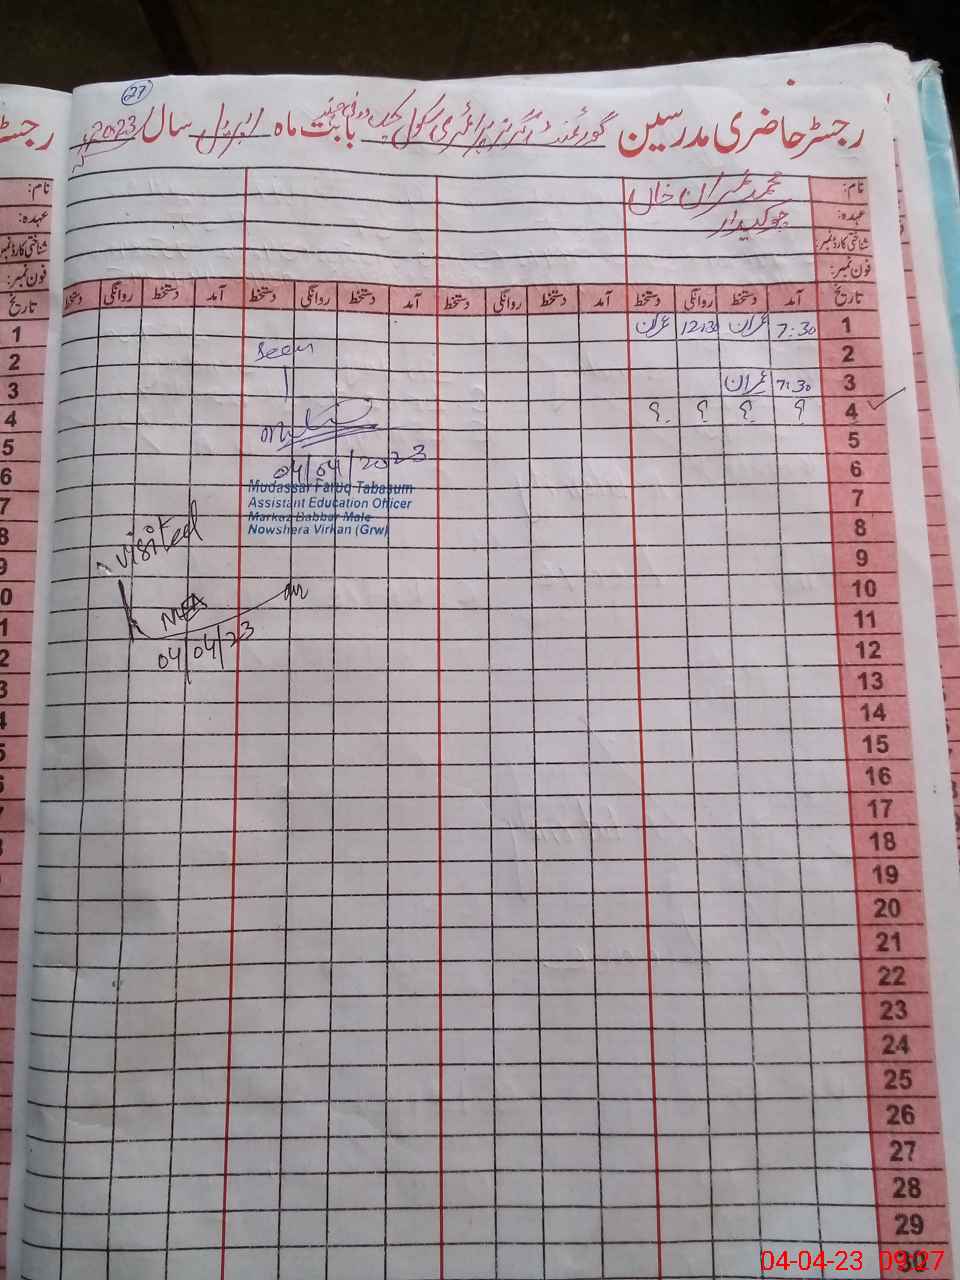 27
رجسٹر حاضری مدرسین گورنمنٹ گرلز پرائمری سکول بابت ماہ اپریل سال 2023
نام: محمد عمران خاں
عہدہ: چوکیدار
شناختی کارڈ نمبر:
فون نمبر:
تاریخ آمد دستخط روانگی دستخط آمد دستخط روانگی دستخط آمد دستخط روانگی دستخط آمد دستخط روانگی دستخط
1 7:30 عمران 12:30 عمران
2
3 7:30 عمران
4 ؟ ؟ ؟ ؟
5
6
7
8
9
10
11
12
13
14
15
16
17
18
19
20
21
22
23
24
25
26
27
28
29
30
Seen
04/04/2023
Mudassar Faruq Tabasum
Assistant Education Officer
Markaz Babbar Male
Nowshera Virkan (Grw)
visited
MEA
04/04/23
رجسٹر
نام:
عہدہ:
شناختی کارڈ نمبر
فون نمبر:
تاریخ
1
2
3
4
5
6
7
8
9
0
1
2
3
4
5
6
04-04-23 09:27